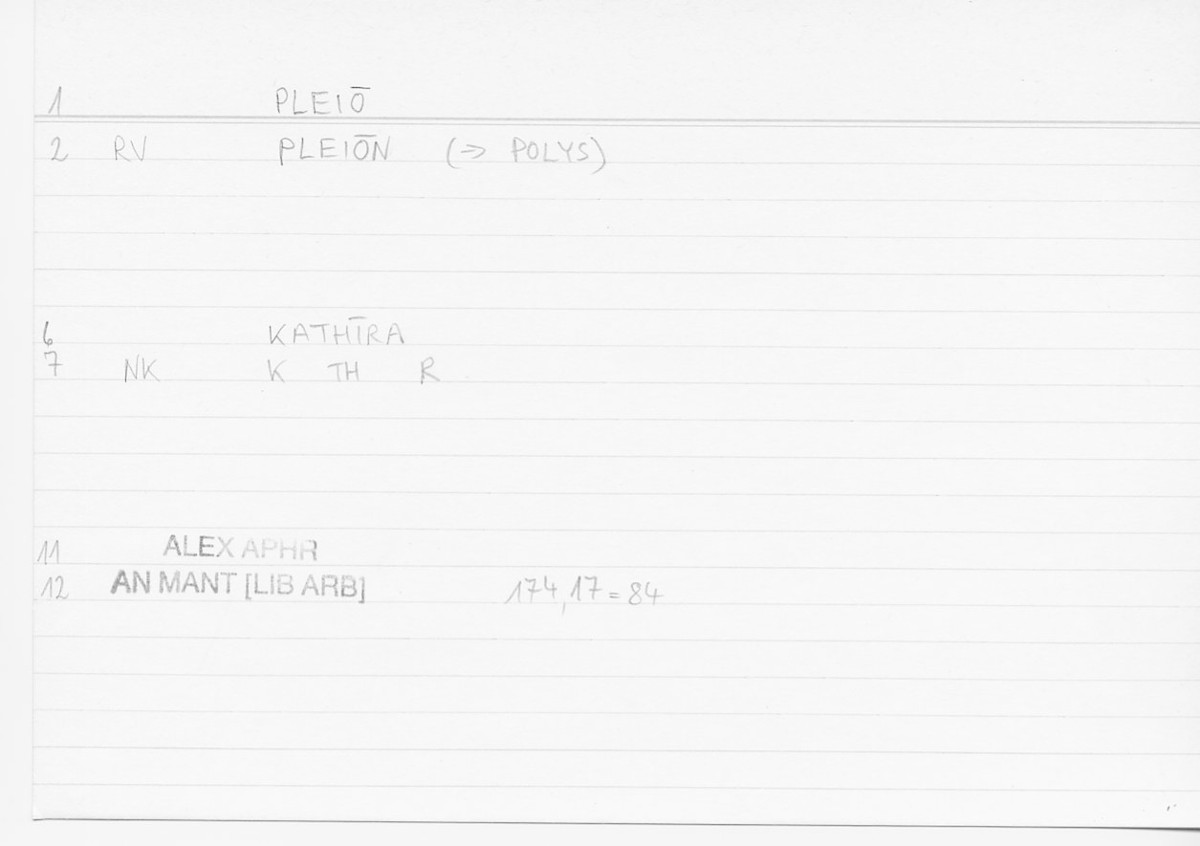 1 PLEIŌ
2 RV PLEIŌN (=> POLYS)
6 KATHĪRA
7 NK K TH R
11 ALEX APHR
12 AN MANT [LIB ARB] 174,17 = 84